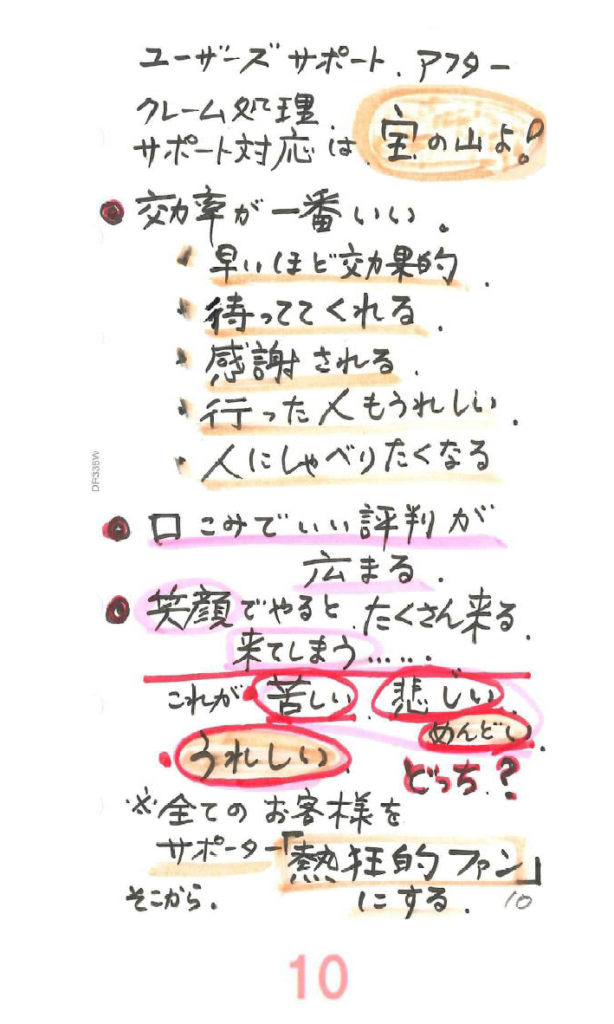 ユーザーズサポート、アフター
クレーム処理、
サポート対応は、宝の山よ!
効率が一番いい。
・早いほど効果的、
・待っててくれる、
・感謝される、
・行った人もうれしい、
・人にしゃべりたくなる
口こみでいい評判が
広まる、
笑顔でやると、たくさん来る、
来てしまう……、
これが苦しい、悲しい、
めんどい、
うれしい、どっち、?
※全てのお客様を
サポーター「熱狂的ファン」
にする、
そこから、
10
DF335W
10